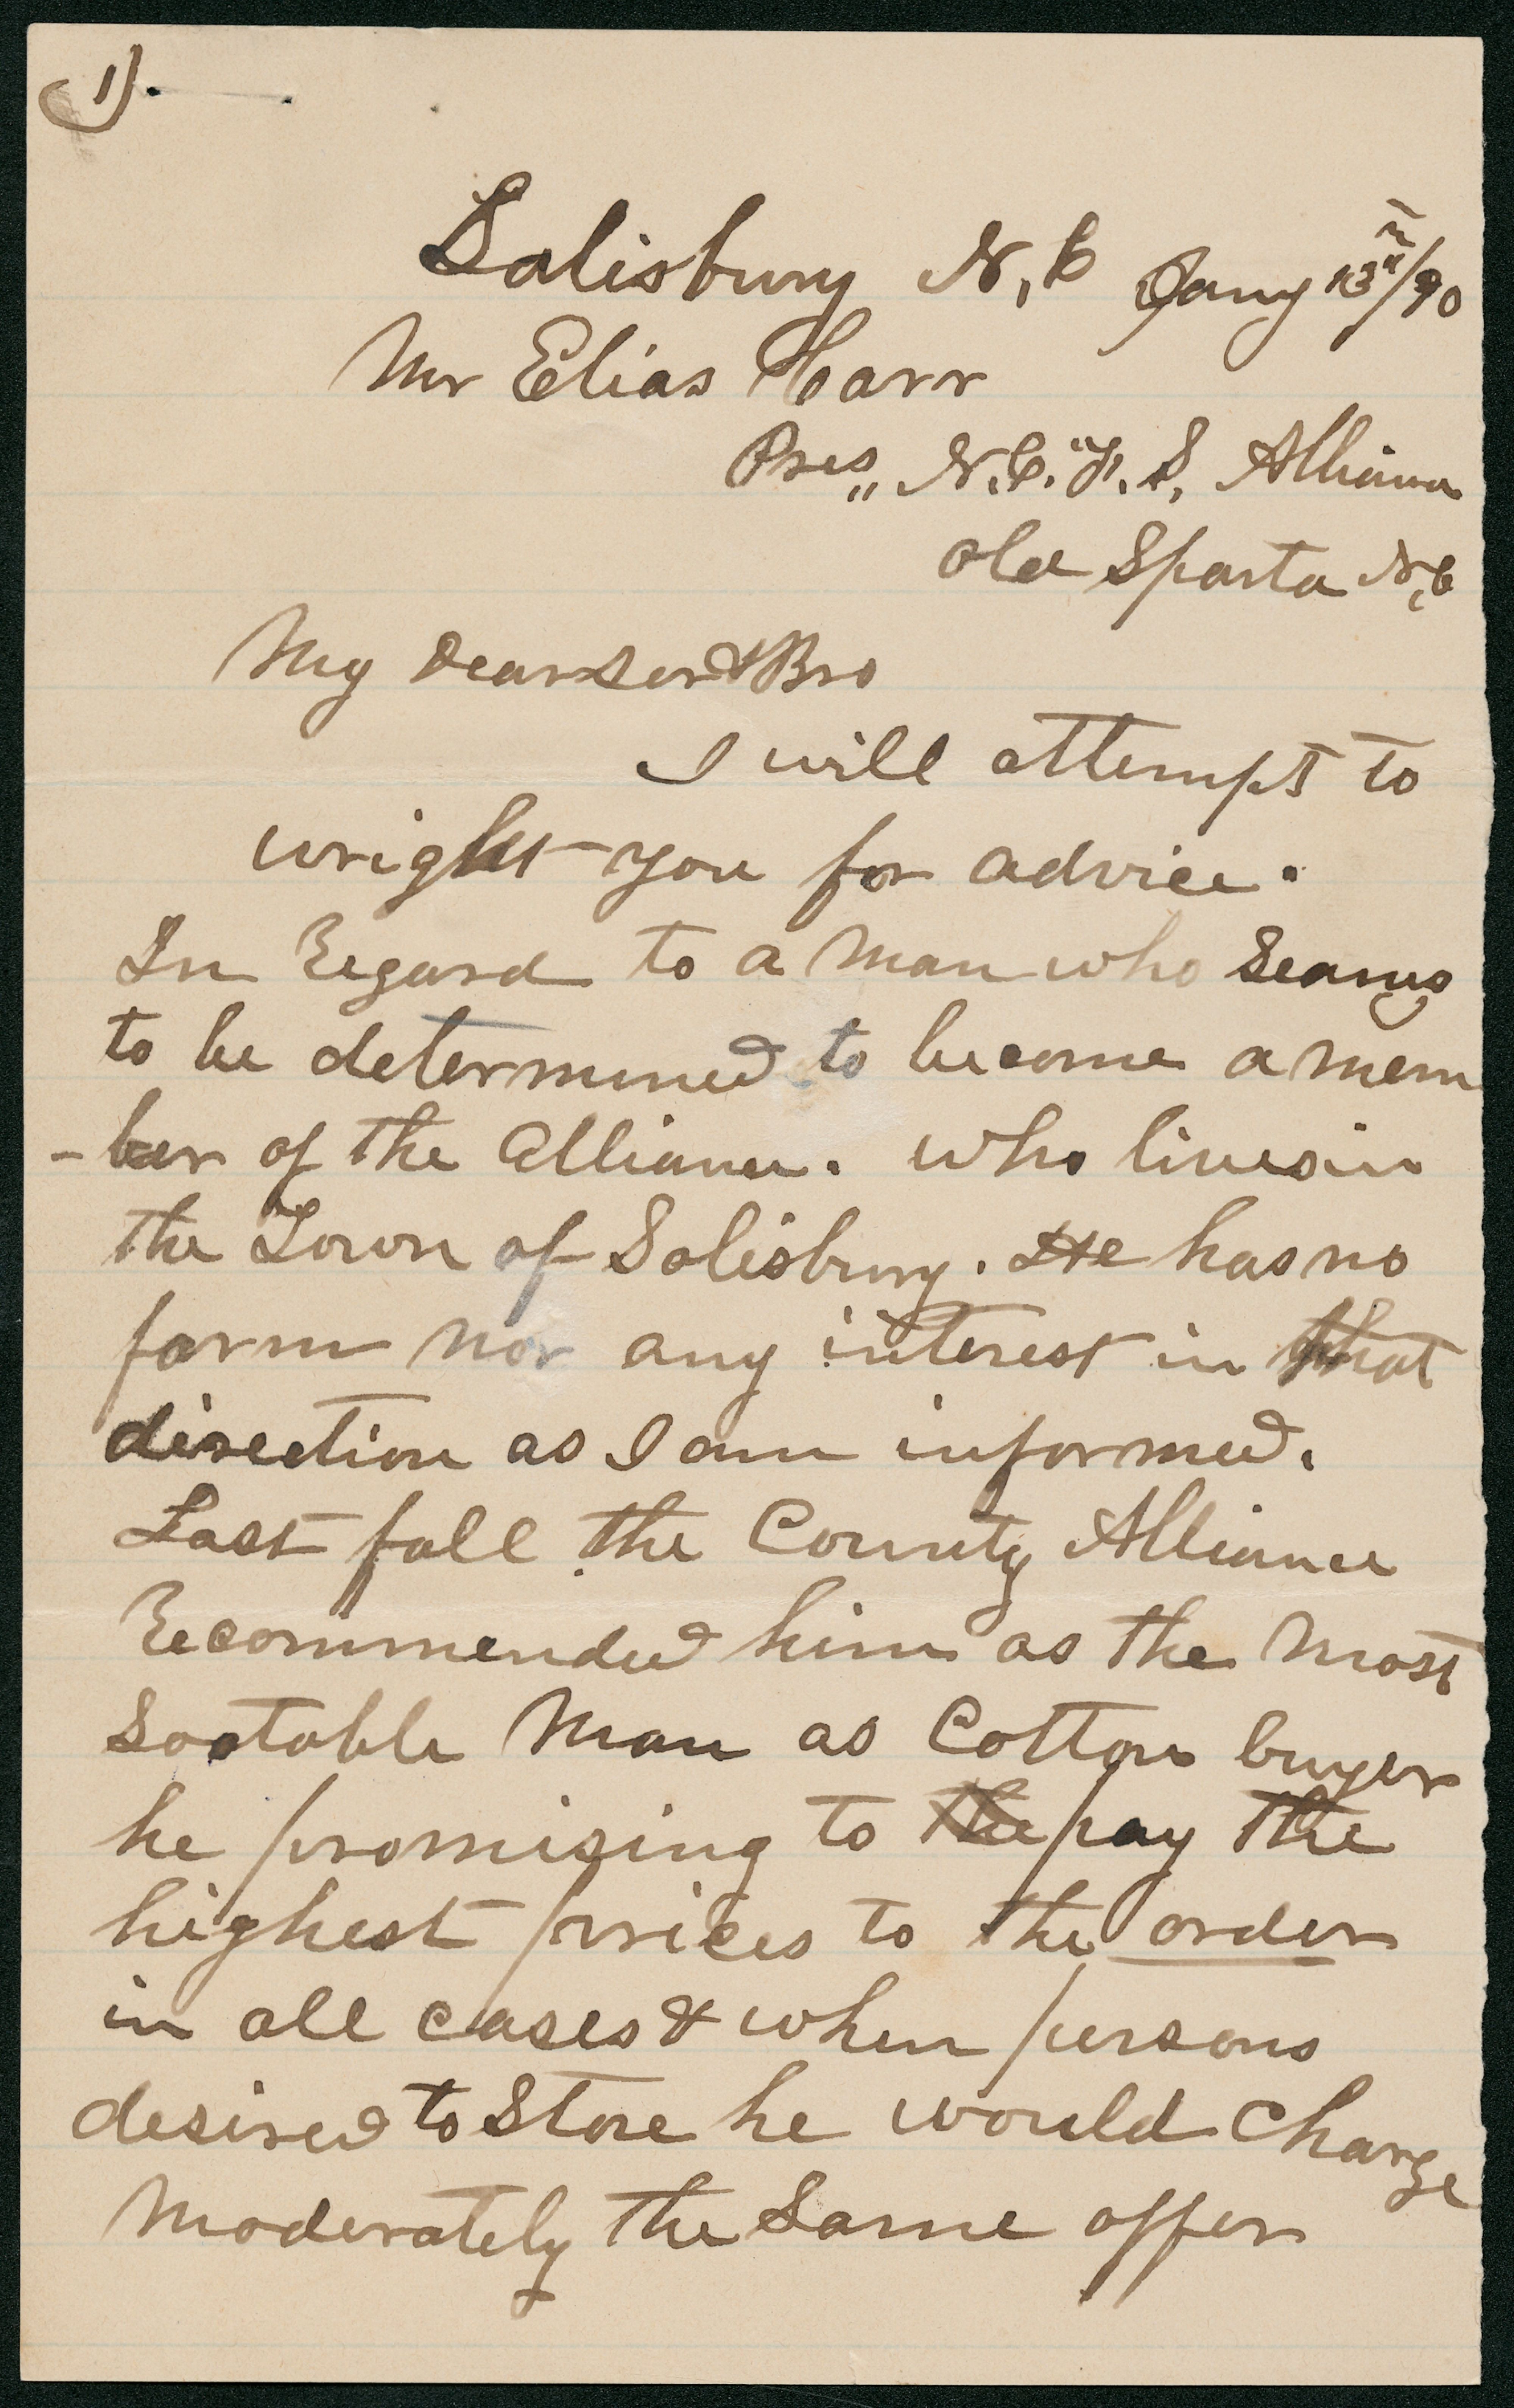 1).
Salisbury N,C Jany 13th/90
Mr Elias Carr
Pres,, N.C. F. S, Alliance
Old Sparta N,C
My Dear Ser & Bro
I will attempt to
wright you for advice.
In Regard to a man who Seams
to be determined to become a mem
-ber of the Alliance. who lives in
the Town of Salisbury. He has no
farm nor any interest in that
direction as I am informed.
Last fall the County Alliance
Recommended him as the most
Sootable Man as Cotton buyer
he promising to the pay the
highest prices to the order
in all cases & when persons
desired to Store he would Charge
Moderately the Same offer